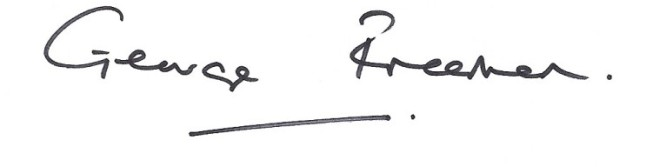 George Freeman.